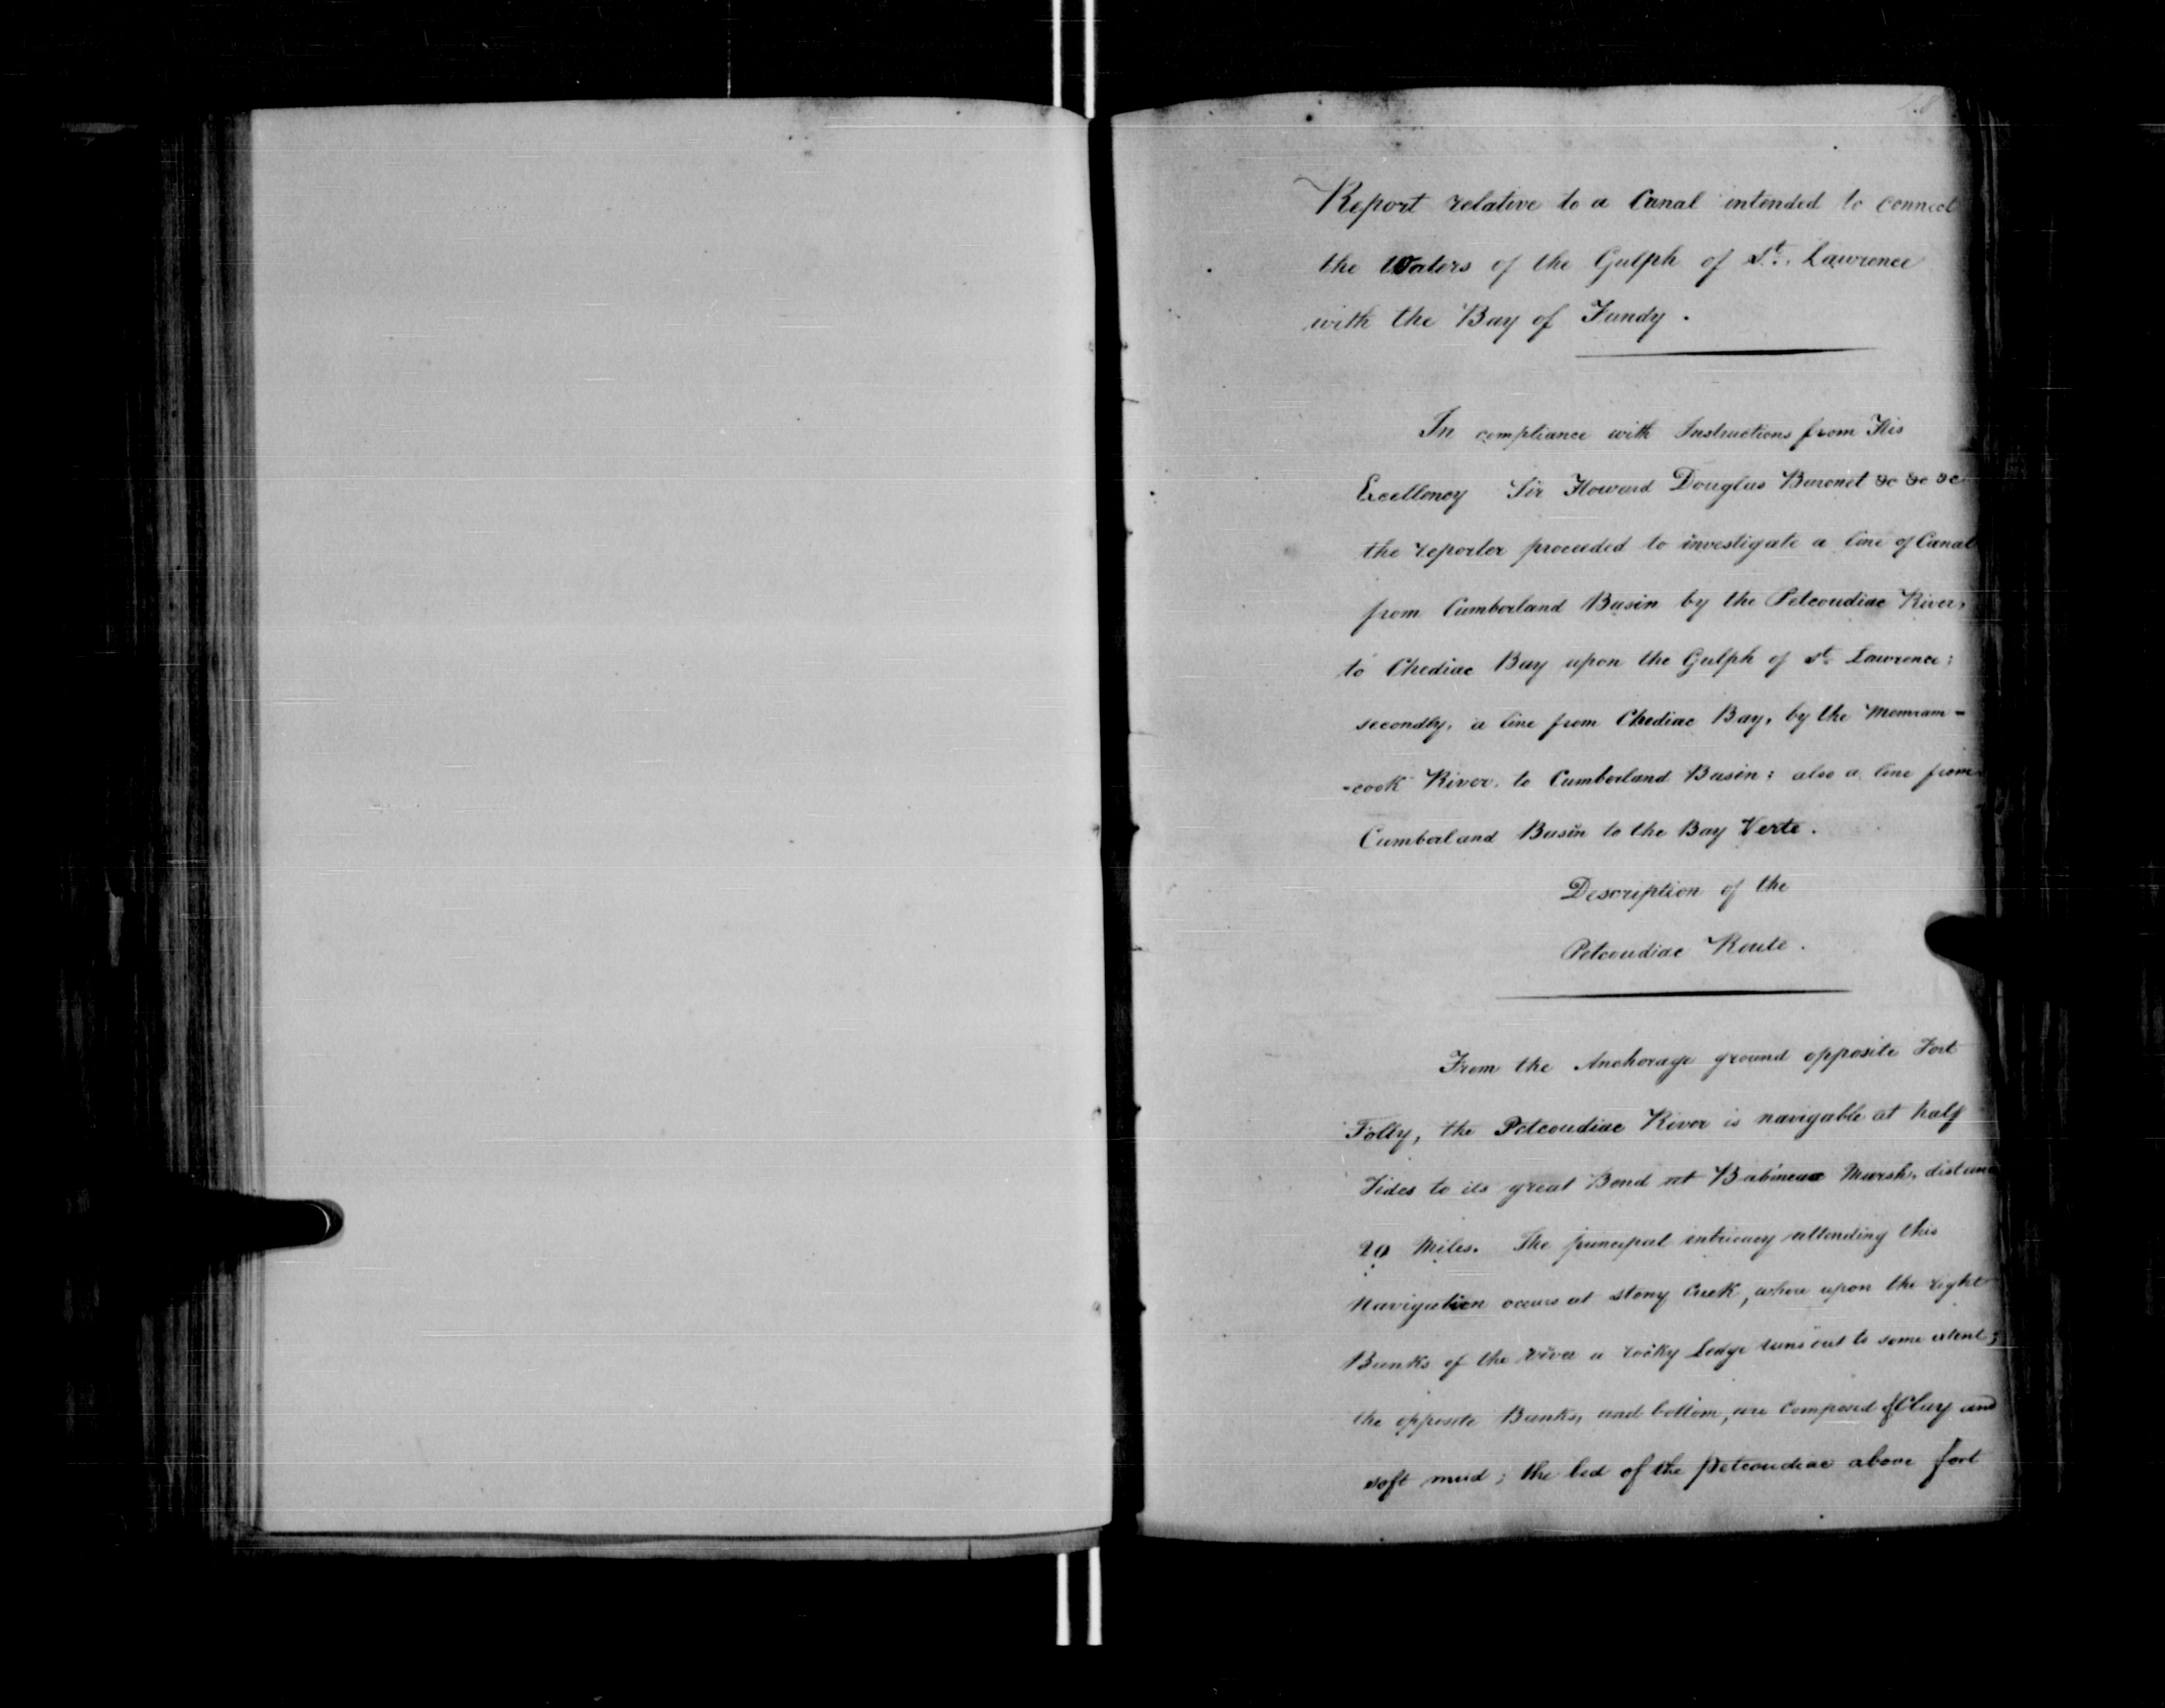 Report relative to a Canal intended to connect
the Waters of the Gulph of St. Lawrence
with the Bay of Fundy.
In compliance with Instructions from His
Excellency Sir Howard Douglas Baronet &c &c &c
the reporter proceeded to investigate a line of Canal
from Cumberland Basin by the Petcoudiac River,
to Chediac Bay upon the Gulph of St. Lawrence;
secondly, a line from Chediac Bay, by the Memram-
-cook River, to Cumberland Basin; also a line from
Cumberland Basin to the Bay Verte.
Description of the
Petcoudiac Route.
From the Anchorage ground opposite Fort
Folly, the Petcoudiac River is navigable at half
Tides to its great Bend at Babineau Marsh, distance
20 Miles. The principal intricacy attending this
Navigation occurs at Stony Creek, where upon the right
Banks of the river a rocky Ledge runs out to some extent;
the opposite Banks, and bottom, are composed of Clay and
soft mud; the bed of the petcoudiac above fort